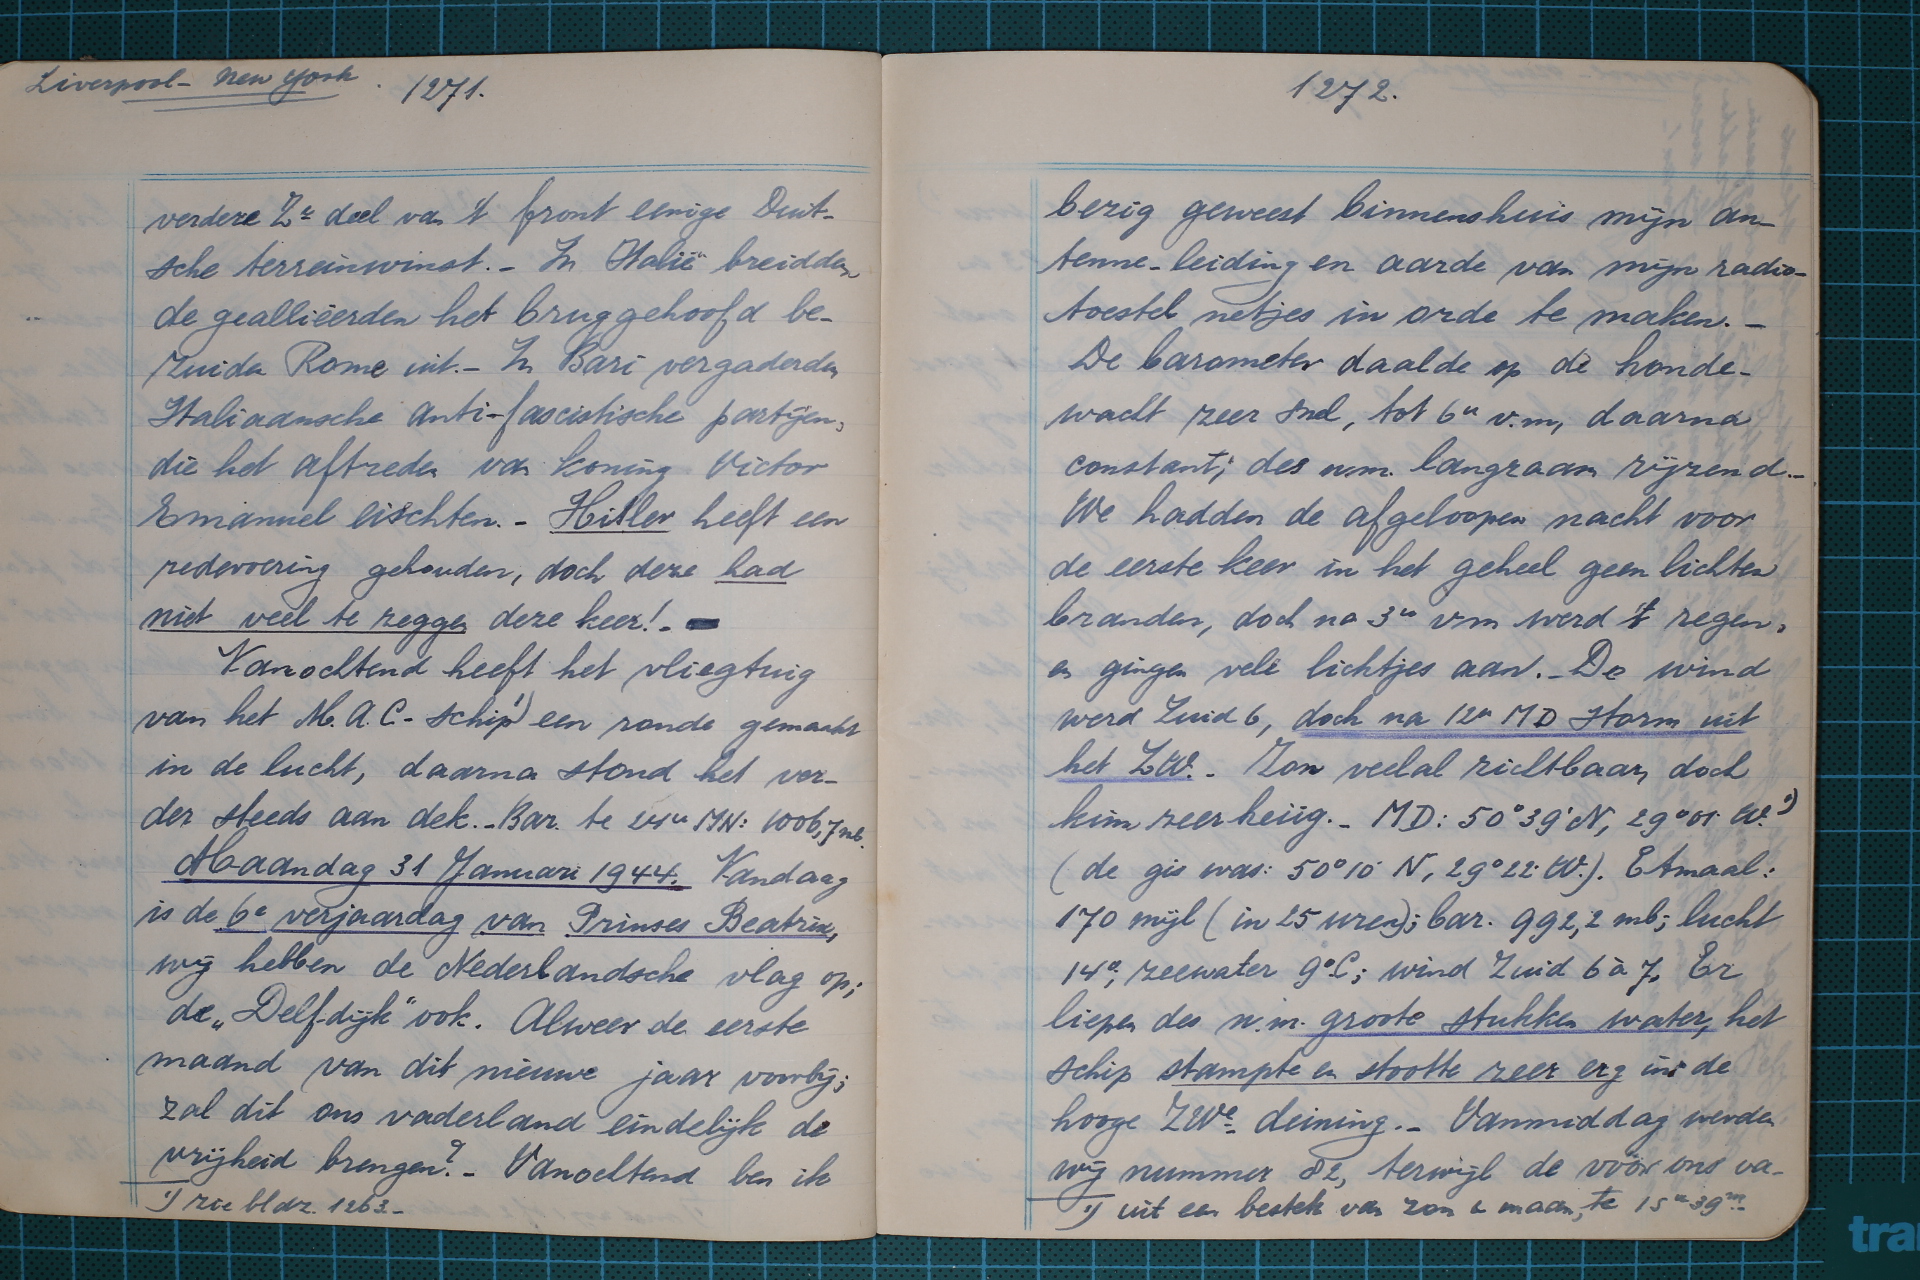 Liverpool - New York.
1271.
verdere Ze deel van 't front eenige Duit-
sche terreinwinst. - In Italië breidden
de geallieerden het bruggehoofd be-
zuiden Rome uit. - In Bari vergaderden
Italiaansche anti-fascistische partijen,
die het aftreden van koning Victor
Emanuel eischten. - Hitler heeft een
redevoering gehouden, doch deze had
niet veel te zeggen deze keer! -
Vanochtend heeft het vliegtuig
van het M.A.C.-schip 1) een ronde gemaakt
in de lucht, daarna stond het ver-
der steeds aan dek. - Bar. te 24u MN: 1006,7 mb.
Maandag 31 Januari 1944. Vandaag
is de 6e verjaardag van Prinses Beatrix,
wij hebben de Nederlandsche vlag op;
de „Delfdijk" ook. Alweer de eerste
maand van dit nieuwe jaar voorbij;
zal dit ons vaderland eindelijk de
vrijheid brengen? - Vanochtend ben ik
1) zie bldz. 1263. -
1272.
bezig geweest binnenshuis mijn an-
tenne-leiding en aarde van mijn radio-
toestel netjes in orde te maken. -
De barometer daalde op de honde-
wacht zeer snel, tot 6u v.m, daarna
constant; des n.m. langzaam rijzend. -
We hadden de afgeloopen nacht voor
de eerste keer in het geheel geen lichten
branden, doch na 3u vm werd 't regen,
en gingen vele lichtjes aan. - De wind
werd Zuid 6, doch na 12u MD storm uit
het ZW. - Zon veelal zichtbaar, doch
kim zeer heiig. - MD: 50°39' N, 29°01' W. 1)
(de gis was: 50°10' N, 29°22' W.). Etmaal:
170 mijl (in 25 uren); bar. 992,2 mb; lucht
14°, zeewater 9°C; wind Zuid 6 à 7. Er
liepen des n.m. groote stukken water, het
schip stampte en stootte zeer erg in de
hooge ZWe deining. - Vanmiddag werden
wij nummer 82, terwijl de vóór ons va-
1) uit een bestek van zon & maan, te 15u 39m. -
tra